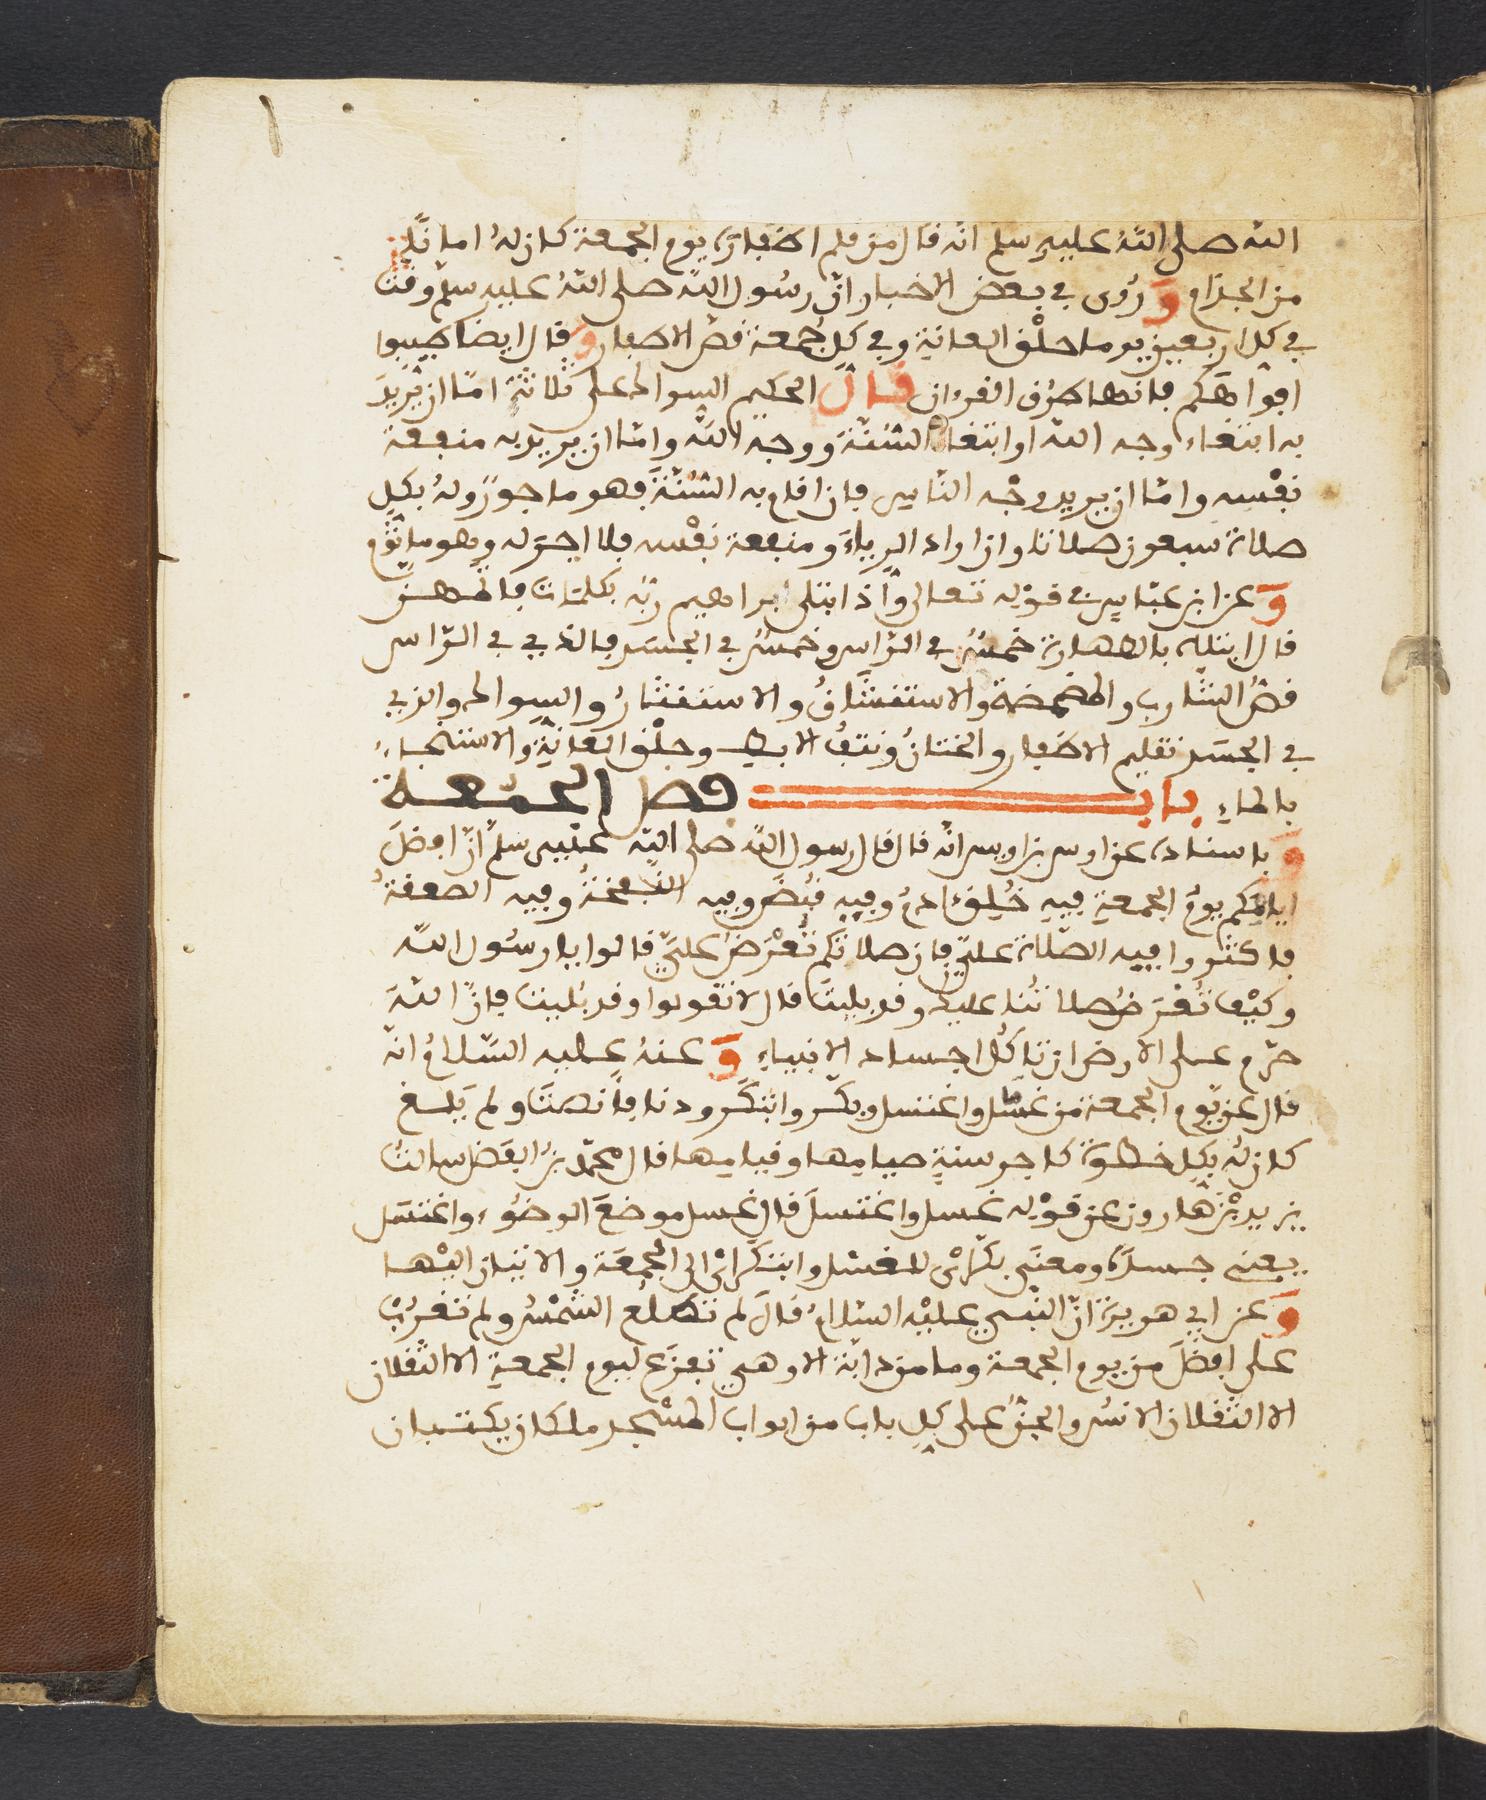 الله صلى الله عليه وسلم انه قال من قلم اظفاره يوم الجمعة كان له امانا
من الجذام وروى في بعض الاخبار ان رسول الله صلى الله عليه وسلم وقت
في كل اربعين يوما حلق العانة وفي كل جمعة قص الاظفار وقال ايضا طيبوا
افواهكم فانها طرق القرءان قال الحكيم السواك على ثلاثة اما ان يريد
به ابتغاء وجه الله او ابتغاء السنة ووجه الله واما ان يريد به منفعة
نفسه واما ان يريد وجه الناس فان اقام به السنة فهو ماجور وله بكل
صلاة سبعون صلاتا وان اراد الرياء ومنفعة نفسه فلا اجر له وهو ماثوم
وعن ابن عباس في قوله تعالى واذ ابتلى ابراهيم ربه بكلمات فاطهن
قال ابتله بالطهارة خمس في الراس وخمس في الجسد فالذي في الراس
قص الشارب والمضمضة والاستنشاق والاستنثار والسواك والذي
في الجسد تقليم الاظفار والختان ونتف الابط وحلق العانة والاستنجاء
بالماء باب فضل الجمعة
وباسناده عن اوس بن اوس انه قال قال رسول الله صلى الله عليه وسلم ان افضل
ايامكم يوم الجمعة فيه خلق ءادم وفيه قبض وفيه النفخة وفيه الصعقة
فاكثروا فيه الصلاة علي فان صلاتكم تعرض علي قالوا يا رسول الله
وكيف تعرض صلاتنا عليك وقد بليت قال لا تقولوا وقد بليت فان الله
حرم على الارض ان تاكل اجساد الانبياء وعنه عليه السلام انه
قال عن يوم الجمعة من غسل واغتسل وبكر وابتكر ودنا فانصت ولم يلغ
كان له بكل خطوة كاجر سنة صيامها وقيامها قال محمد بن الفضل سالت
يزيد بن هارون عن قوله غسل واغتسل قال غسل موضع الوضوء واغتسل
يعني جسده ومعنى بكر اى للغسل وابتكر اى الى الجمعة والاتيان اليها
وعن ابي هريرة ان النبي عليه السلام قال لم تطلع الشمس ولم تغرب
على افضل من يوم الجمعة وما من دابة الا وهي تفزع ليوم الجمعة الا الثقلان
الا الثقلان الانس والجن على كل باب من ابواب المسجد ملكان يكتبان